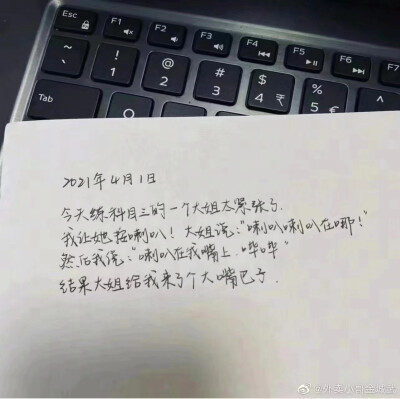 Esc
F1
F2
F3
F4
F5
F6
~
`
!
1
@
2
#
3
$
4
%
5
€
Tab
2021年4月1日
今天练科目三的一个大姐太紧张了.
我让她按喇叭！大姐说："喇叭喇叭在哪！"
然后我说："喇叭在我嘴上.哔哔"
结果大姐给我来了个大嘴巴子.